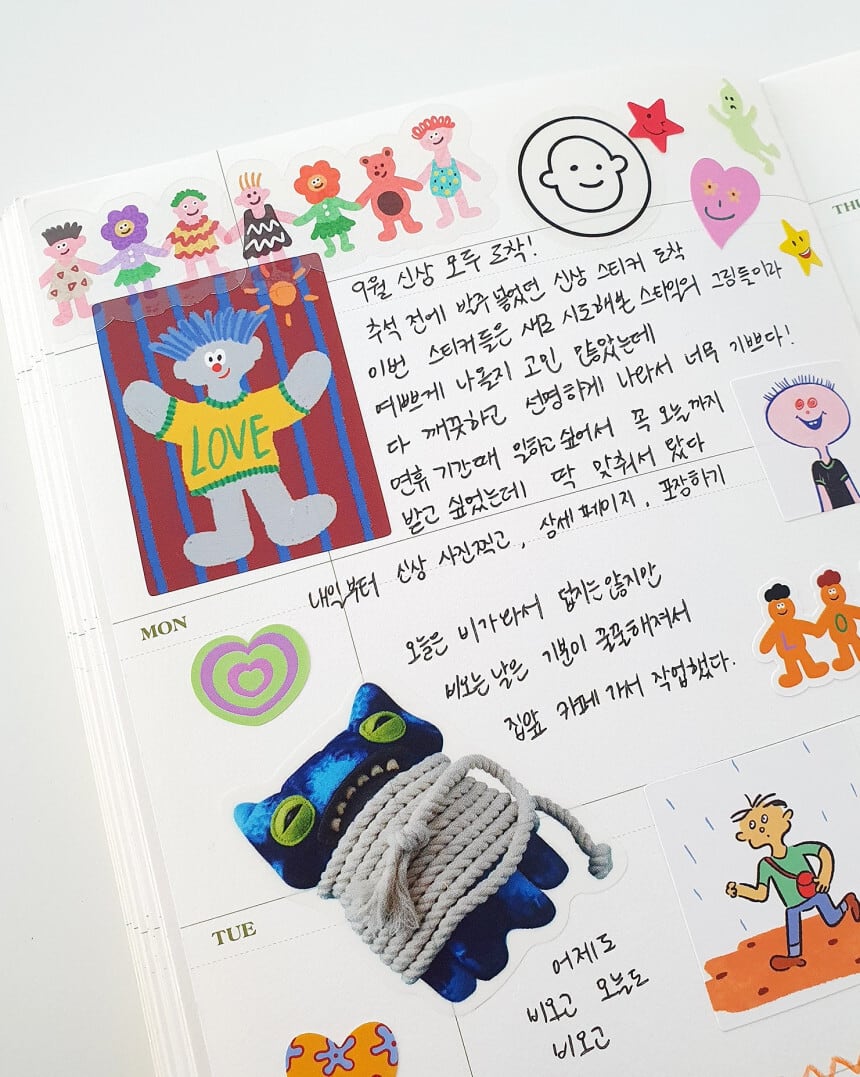 9월 신상 모두 도착!
추석 전에 발주 넣었던 신상 스티커 도착
이번 스티커들은 새로 시도해본 스타일의 그림들이라
예쁘게 나올지 고민 많았는데
다 깨끗하고 선명하게 나와서 너무 기쁘다!
연휴 기간때 일하고 싶어서 꼭 오늘까지
받고 싶었는데 딱 맞춰서 왔다
내일부터 신상 사진찍고, 상세페이지, 포장하기
LOVE
THU
MON
오늘은 비가와서 덥지는 않지만
비오는 날은 기분이 꿀꿀해져서
집앞 카페 가서 작업했다.
L O
TUE
어제도
비오고 오늘도
비오고